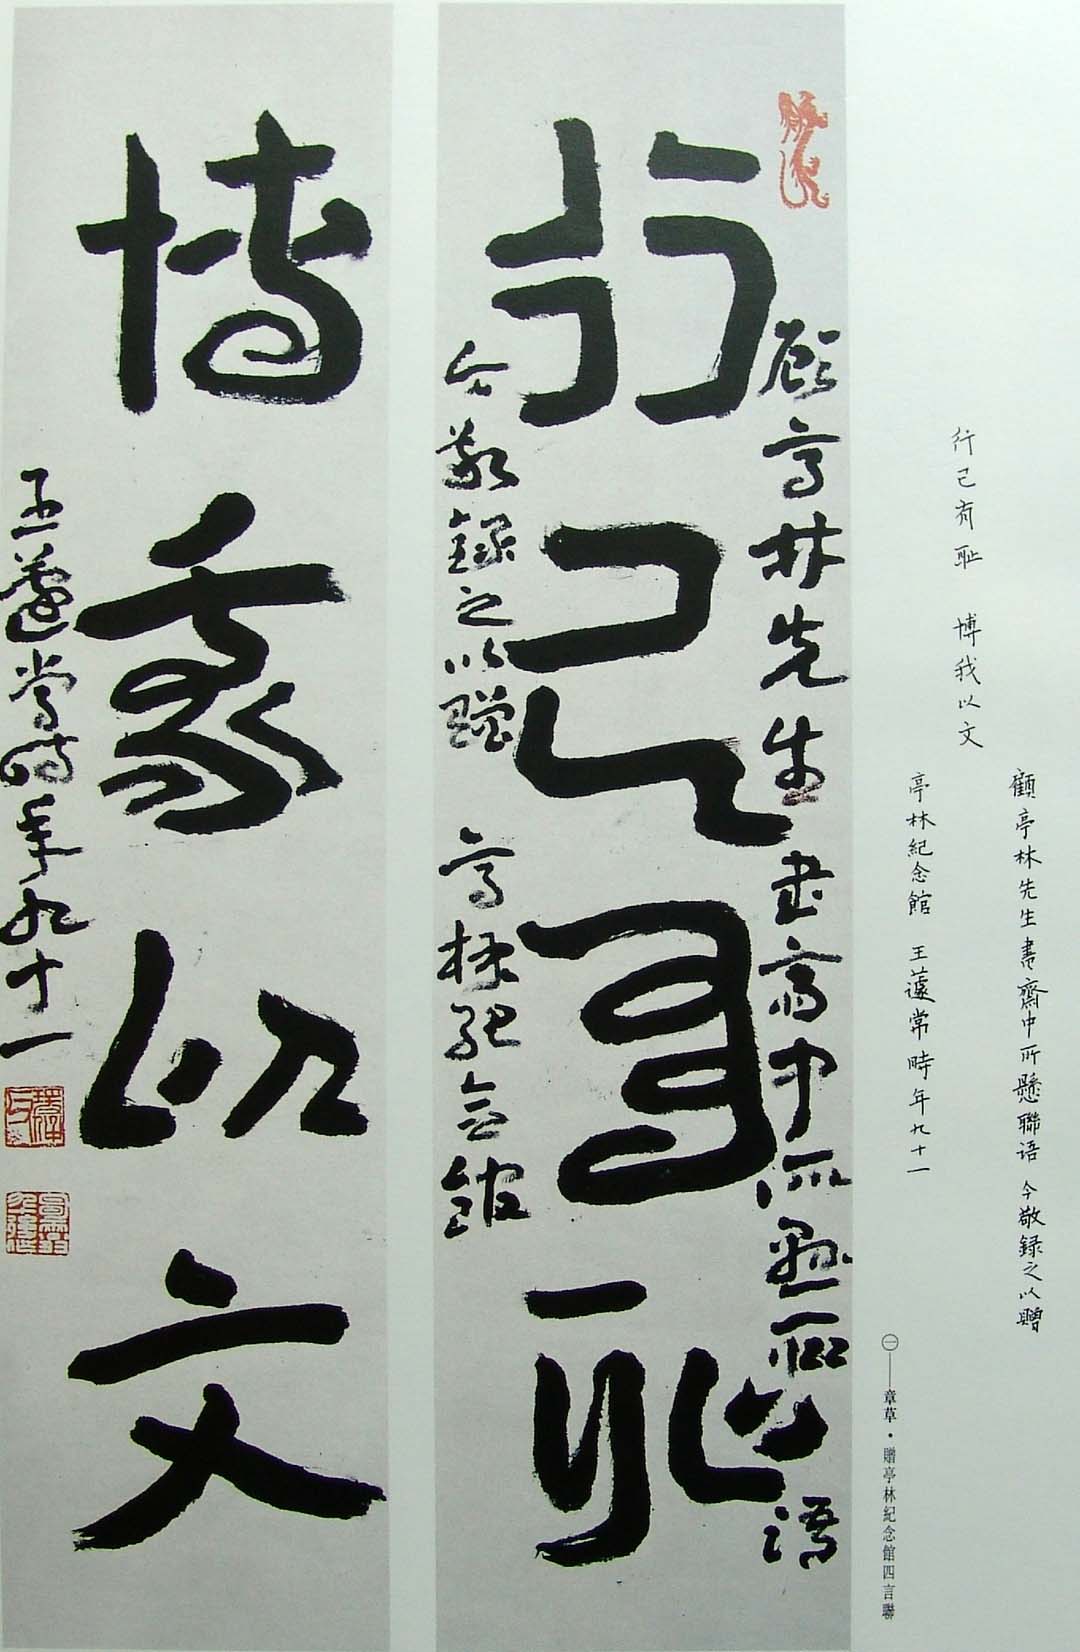 顧亭林先生書齋中所懸聯语 今敬録之以贈
行己有耻 博我以文
亭林紀念館 王蘧常時年九十一
㊀——章草·贈亭林紀念館四言聯
顾亭林先生書齋中所懸聯語
行己有耻
今敬録之以贈 亭林紀念館
博我以文
王蘧常時年九十一